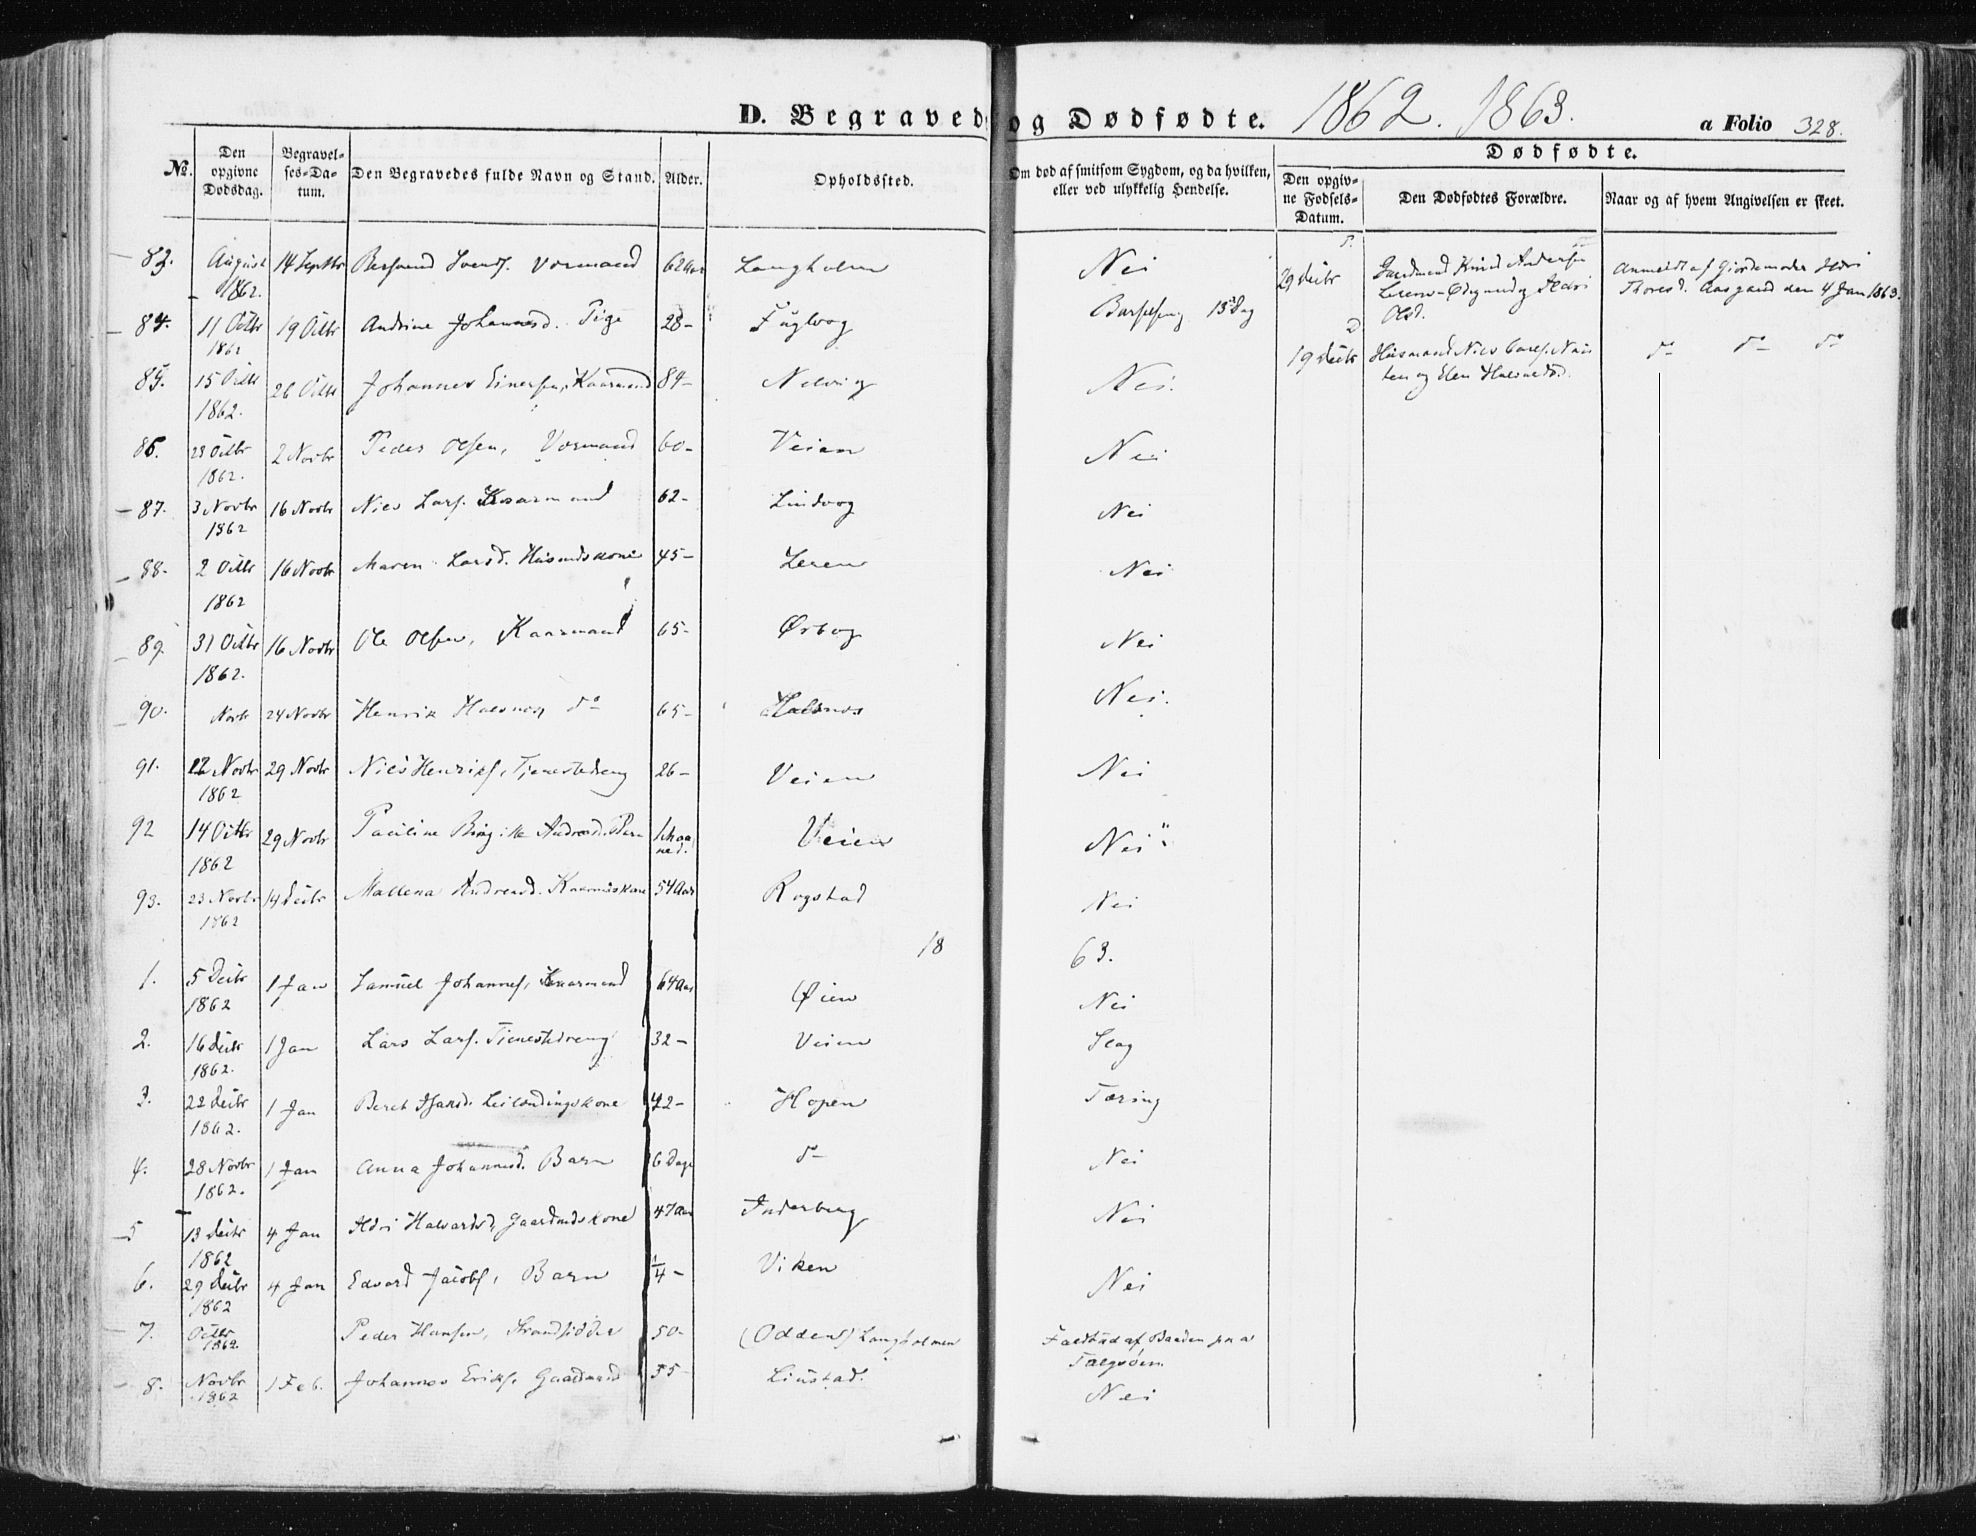 D. Begravede og Dødfødte. 1862. 1863. a Folio 328.
No. Den opgivne Dødsdag. Begravelses-Datum. Den Begravedes fulde Navn og Stand. Alder. Opholdssted. Om død af smitsom Sygdom, og da hvilken, eller ved ulykkelig Hendelse.
Dødfødte.
Den opgivne Fødsels-Datum. Den Dødfødtes Forældre. Naar og af hvem Angivelsen er skeet.
83. August 1862. 14 Septbr Vormand 62 Aar Langholm Nei
84. 11 Octbr 1862 19 Octbr Andrine Johannesd. Pige 28- Fuglvog 13 Dag
85. 15 Octbr 1862. 26 Octbr Johannes Einersen, Kaarmand 84- Nelvig Nei.
86. 23 Octbr 1862. 2 Novbr Peder Olsen, Vormand 60- Veien Nei
87. 3 Novbr 1862 16 Novbr Niels Lars. Kaarmand 62- Lindvog Nei
88. 2 Octbr 1862 16 Novbr Maren Larsd. Husmdskone 45- Leren Nei
89. 31 Octbr 1862. 16 Novbr Ole Olsen, Kaarmand 65- Ørbog Nei
90. Novbr 24 Novbr Henrik Halsnes do 65- Halsnes Nei.
91. 12 Novbr 1862 29 Novbr Niels Henriks, Tjenestedreng 26- Veien Nei
92 14 Octbr 1862 29 Novbr Pauline Birgitte Andreasd. Barn 1 Maaned. Veien Nei
93. 23 Novbr 1862 14 Decbr Mallena Andreasd. Kaarmdskone 54 Aar Rogstad Nei
18 63.
1. 5 Decbr 1862 1 Jan Samuel Johannes, Kaarmand 64 Aar Øien Nei
2. 16 Decbr 1862. 1 Jan Lars Lars. Tienestedreng 32- Veien Slag
3. 22 Decbr 1862. 1 Jan Beret Leilændingskone 42- Hopen Tæring
4. 28 Novbr 1862. 1 Jan Anna Johannesd. Barn 6 Dage do Nei
5 13 Decbr 1862 4 Jan Aldri Halvardsd, Gaardmdskone 47 Aar Inderberg Nei
6. 29 Decbr 1862 4 Jan Edvard Jacobs, Barn 1/4- Viken Nei
7. Octbr 1862. Peder Hansen, Strandsidder 50- (Odden) Langholmen Faldt ud af Baaden paa Talgsøen
8. Novbr 1862 1 Feb. Johannes Eriks, Gaardmand 55- Liustad. Nei
29 Decbr Gaardmand Knud Andersen Leren-Ødegaard og Aldri Olsd. Anmeldt af Giordemoder Thoresd. Aasgaard den 4 Jan 1863.
19 Decbr Husmand Niels Carls. og Elen Halvardsd. do do do